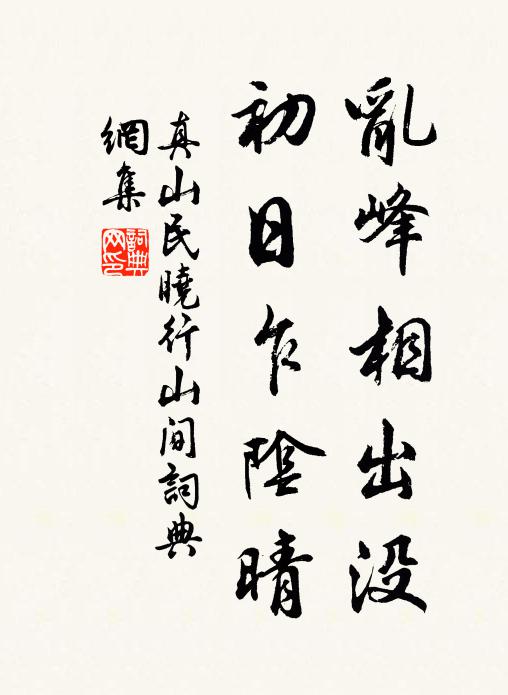 亂峰相出没
初日乍陰晴
真山民曉行山间詞典
網集
詞典
网印